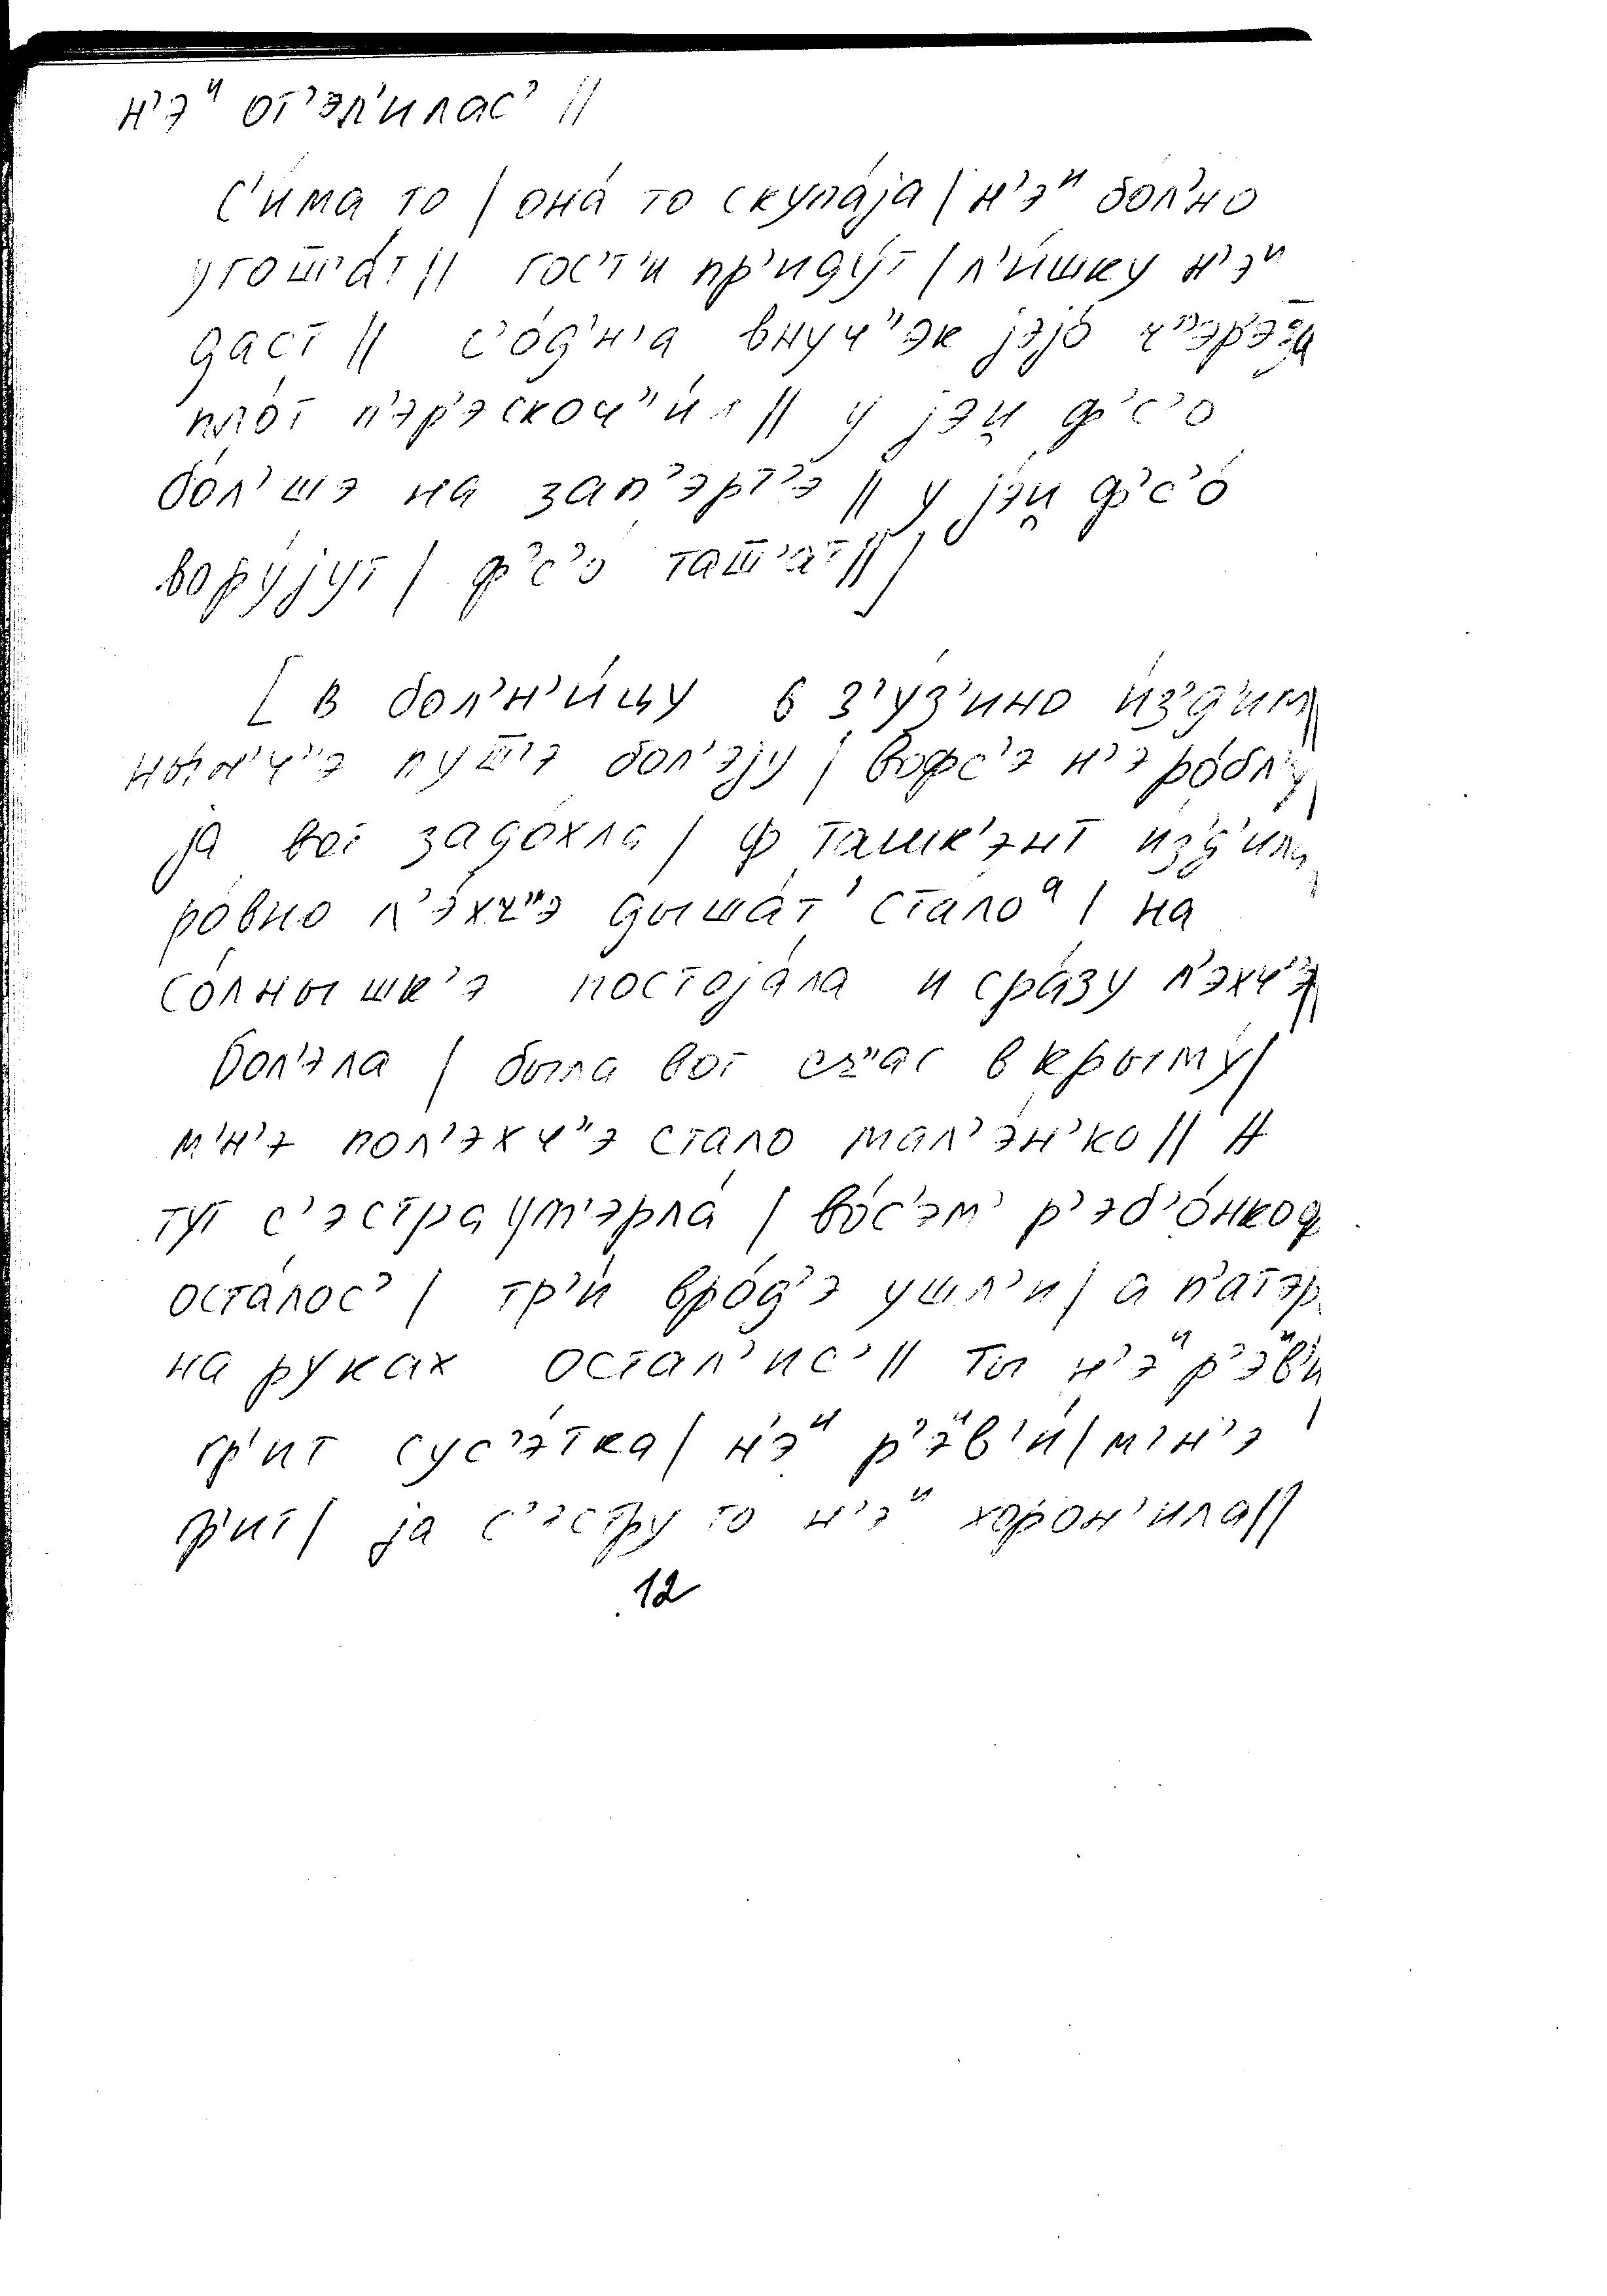 н’эᶦᶦ от’эл’илас’ ||
С’и́ма то | она́ то скупа́jа | н’эᶦᶦ бол’но
угош̅’а́т || гос’т’и пр’иду́т | л’и́шку н’эᶦᶦ
даст || с’о́д’н’а внуч”эк jэjо́ ч”эр’эз
пло́т п’эр’эскоч”и́л || у jэи̯ ф’с’о
бо́л’шэ на зап’эрт’э || у jэ́и̯ ф’с’о́
вору́jут | ф’с’о́ таш̅’ат || ]
[ в бол’н’и́цу в з’у́з’ино и́з’д’им ||
нын’ч’э пуш̅’э бол’э́jу | вофс’э н’э ро́бл’у |
jа вот задо́хла | ф ташк’энт и́з’д’ила
ро́вно л’э́хч”э дыша́т’ ста́лоᵃ | на
со́лнышк’э постоjа́ла и сра́зу л’эхч”э ||
бол’эла | была вот сч”ас в крыму́ |
м’н’э пол’эхч”э стало мал’э́н’ко || А
тут с’эстра ум’эрла́ | во́с’эм’ р’эб’о́нкоф
оста́лос’ | тр’и́ вро́д’э ушл’и | а п’ат’эр
на руках остал’ис’ || ты н’эᶦᶦ р’эᶦᶦв’и́ |
гр’ит сус’э́тка | н’эᶦᶦ р’эᶦᶦв’и́ | м’н’э
гр’ит | jа с’эстру то н’эᶦᶦ хорон’ила ||
12